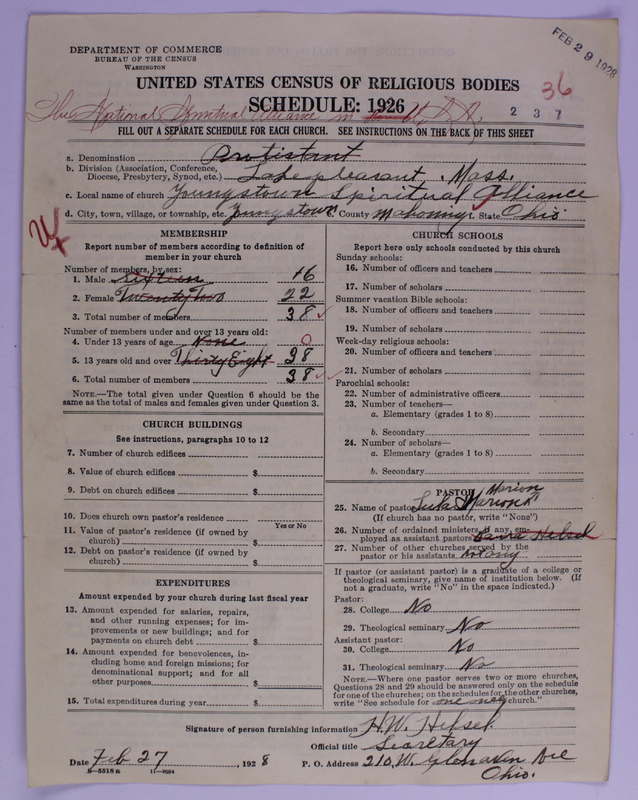 FEB 29 1928
DEPARTMENT OF COMMERCE
BUREAU OF THE CENSUS
WASHINGTON
UNITED STATES CENSUS OF RELIGIOUS BODIES
36
SCHEDULE: 1926
The National Spiritual Alliance in U. S. A.
2 3 7
FILL OUT A SEPARATE SCHEDULE FOR EACH CHURCH. SEE INSTRUCTIONS ON THE BACK OF THIS SHEET
a. Denomination Protistant
b. Division (Association, Conference, Diocese, Presbytery, Synod, etc.) Lakepleasant, Mass.
c. Local name of church Youngstown Spiritual Alliance
d. City, town, village, or township, etc. Youngstown County Mahoning State Ohio
MEMBERSHIP
Report number of members according to definition of
member in your church
Number of members, by sex:
1. Male Sixteen 16
2. Female Twenty Two 22
3. Total number of members 38
Number of members under and over 13 years old:
4. Under 13 years of age None 0
5. 13 years old and over Thirty Eight 38
6. Total number of members 38
NOTE.—The total given under Question 6 should be
same as the total of males and females given under Question 3.
CHURCH BUILDINGS
See instructions, paragraphs 10 to 12
7. Number of church edifices
8. Value of church edifices $
9. Debt on church edifices $
10. Does church own pastor's residence
Yes or No
11. Value of pastor's residence (if owned by
church) $
12. Debt on pastor's residence (if owned by
church) $
EXPENDITURES
Amount expended by your church during last fiscal year
13. Amount expended for salaries, repairs,
and other running expenses; for im-
provements or new buildings; and for
payments on church debt $
14. Amount expended for benevolences, in-
cluding home and foreign missions; for
denominational support; and for all
other purposes $
15. Total expenditures during year $
CHURCH SCHOOLS
Report here only schools conducted by this church
Sunday schools:
16. Number of officers and teachers
17. Number of scholars
Summer vacation Bible schools:
18. Number of officers and teachers
19. Number of scholars
Week-day religious schools:
20. Number of officers and teachers
21. Number of scholars
Parochial schools:
22. Number of administrative officers
23. Number of teachers—
a. Elementary (grades 1 to 8)
b. Secondary
24. Number of scholars—
a. Elementary (grades 1 to 8)
b. Secondary
PASTOR
Marion
25. Name of pastor
(If church has no pastor, write "None")
26. Number of ordained ministers, if any, em-
ployed as assistant pastors Helsel
27. Number of other churches served by the
pastor or his assistants not any
If pastor (or assistant pastor) is a graduate of a college or
theological seminary, give name of institution below. (If
not a graduate, write "No" in the space indicated.)
Pastor:
28. College No
29. Theological seminary No
Assistant pastor:
30. College No
31. Theological seminary No
NOTE.—Where one pastor serves two or more churches,
Questions 28 and 29 should be answered only on the schedule
for one of the churches; on the schedules for the other churches,
write "See schedule for one only church."
Signature of person furnishing information H. W. Helsel
Official title Secretary
Date Feb 27, 1928 P. O. Address 210, W. Glenaven Ave
Ohio.
8—5518a 11—9084